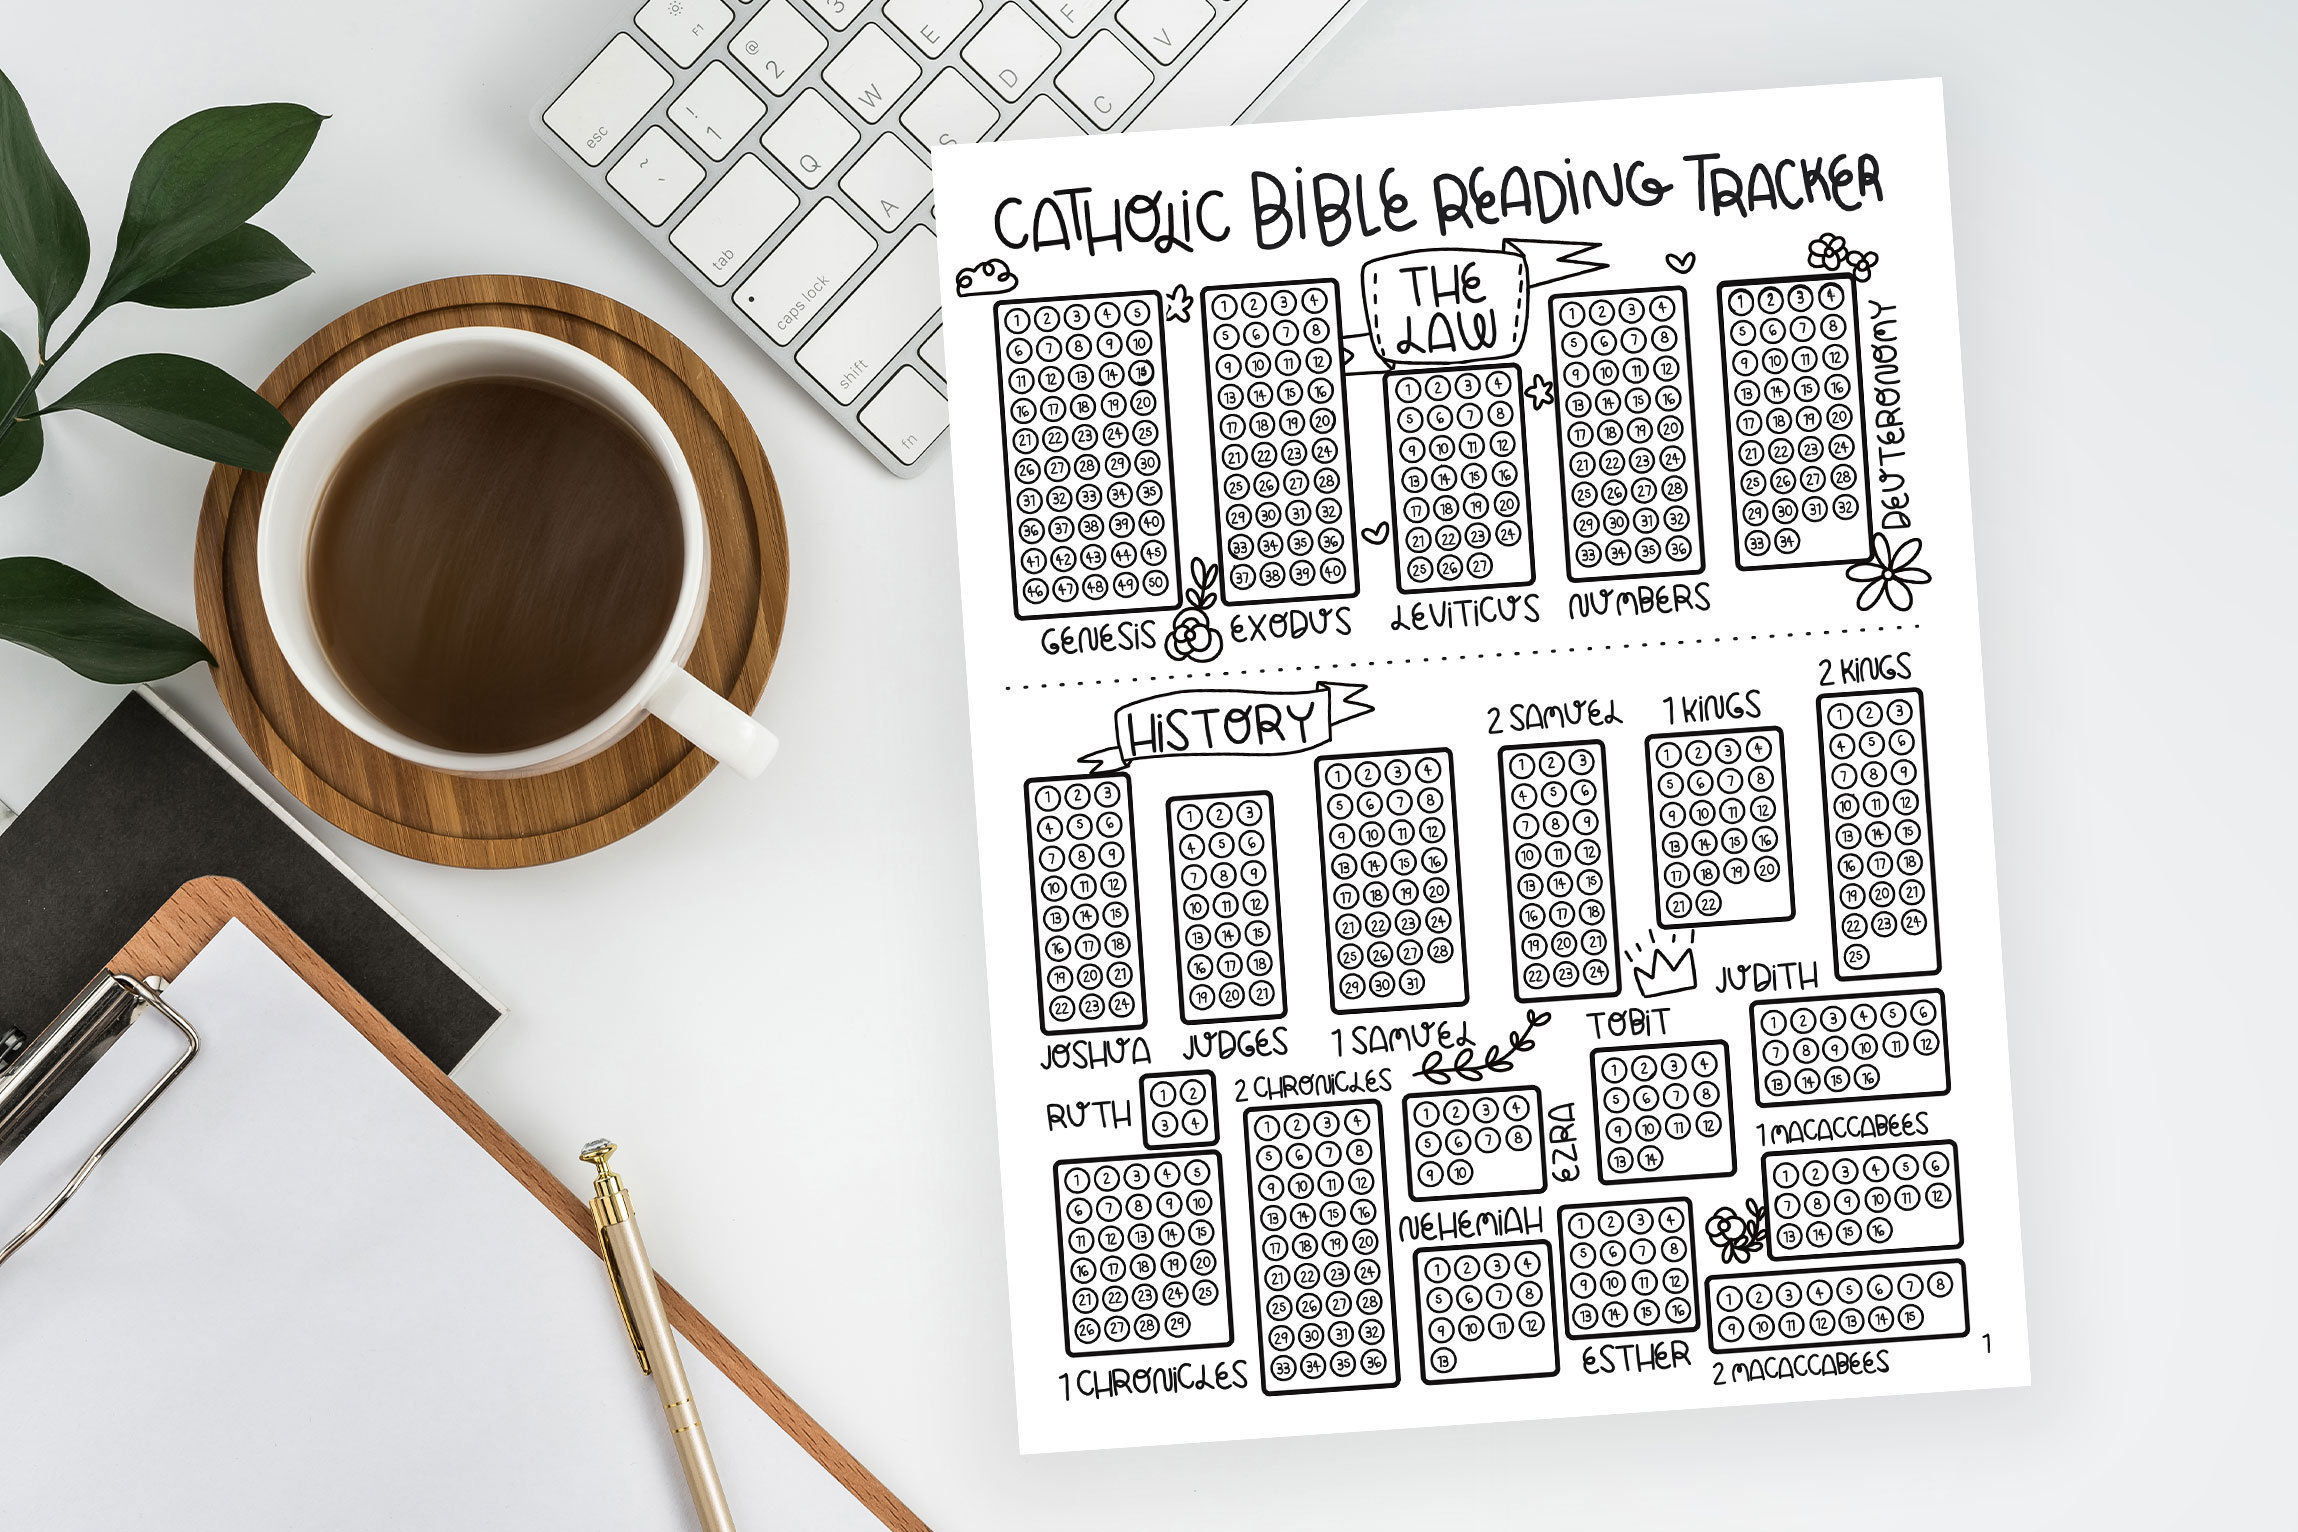 F1
3
F
V
@
2
E
D
C
esc
!
1
W
~
`
Q
S
A
tab
caps lock
shift
fn
CATHOLIC BIBLE READING TRACKER
THE
LAW
1 2 3 4 5
6 7 8 9 10
11 12 13 14 15
16 17 18 19 20
21 22 23 24 25
26 27 28 29 30
31 32 33 34 35
36 37 38 39 40
41 42 43 44 45
46 47 48 49 50
GENESIS
1 2 3 4
5 6 7 8
9 10 11 12
13 14 15 16
17 18 19 20
21 22 23 24
25 26 27 28
29 30 31 32
33 34 35 36
37 38 39 40
EXODUS
1 2 3 4
5 6 7 8
9 10 11 12
13 14 15 16
17 18 19 20
21 22 23 24
25 26 27
LEVITICUS
1 2 3 4
5 6 7 8
9 10 11 12
13 14 15 16
17 18 19 20
21 22 23 24
25 26 27 28
29 30 31 32
33 34 35 36
NUMBERS
1 2 3 4
5 6 7 8
9 10 11 12
13 14 15 16
17 18 19 20
21 22 23 24
25 26 27 28
29 30 31 32
33 34
DEUTERONOMY
HISTORY
1 2 3
4 5 6
7 8 9
10 11 12
13 14 15
16 17 18
19 20 21
22 23 24
JOSHUA
1 2 3
4 5 6
7 8 9
10 11 12
13 14 15
16 17 18
19 20 21
JUDGES
1 2 3 4
5 6 7 8
9 10 11 12
13 14 15 16
17 18 19 20
21 22 23 24
25 26 27 28
29 30 31
1 SAMUEL
2 SAMUEL
1 2 3
4 5 6
7 8 9
10 11 12
13 14 15
16 17 18
19 20 21
22 23 24
1 KINGS
1 2 3 4
5 6 7 8
9 10 11 12
13 14 15 16
17 18 19 20
21 22
2 KINGS
1 2 3
4 5 6
7 8 9
10 11 12
13 14 15
16 17 18
19 20 21
22 23 24
25
RUTH
1 2
3 4
1 2 3 4 5
6 7 8 9 10
11 12 13 14 15
16 17 18 19 20
21 22 23 24 25
26 27 28 29
1 CHRONICLES
2 CHRONICLES
1 2 3 4
5 6 7 8
9 10 11 12
13 14 15 16
17 18 19 20
21 22 23 24
25 26 27 28
29 30 31 32
33 34 35 36
1 2 3 4
5 6 7 8
9 10
EZRA
NEHEMIAH
1 2 3 4
5 6 7 8
9 10 11 12
13
TOBIT
1 2 3 4
5 6 7 8
9 10 11 12
13 14
JUDITH
1 2 3 4 5 6
7 8 9 10 11 12
13 14 15 16
1 2 3 4
5 6 7 8
9 10 11 12
13 14 15 16
ESTHER
1 MACACCABEES
1 2 3 4 5 6
7 8 9 10 11 12
13 14 15 16
1 2 3 4 5 6 7 8
9 10 11 12 13 14 15
2 MACACCABEES
1